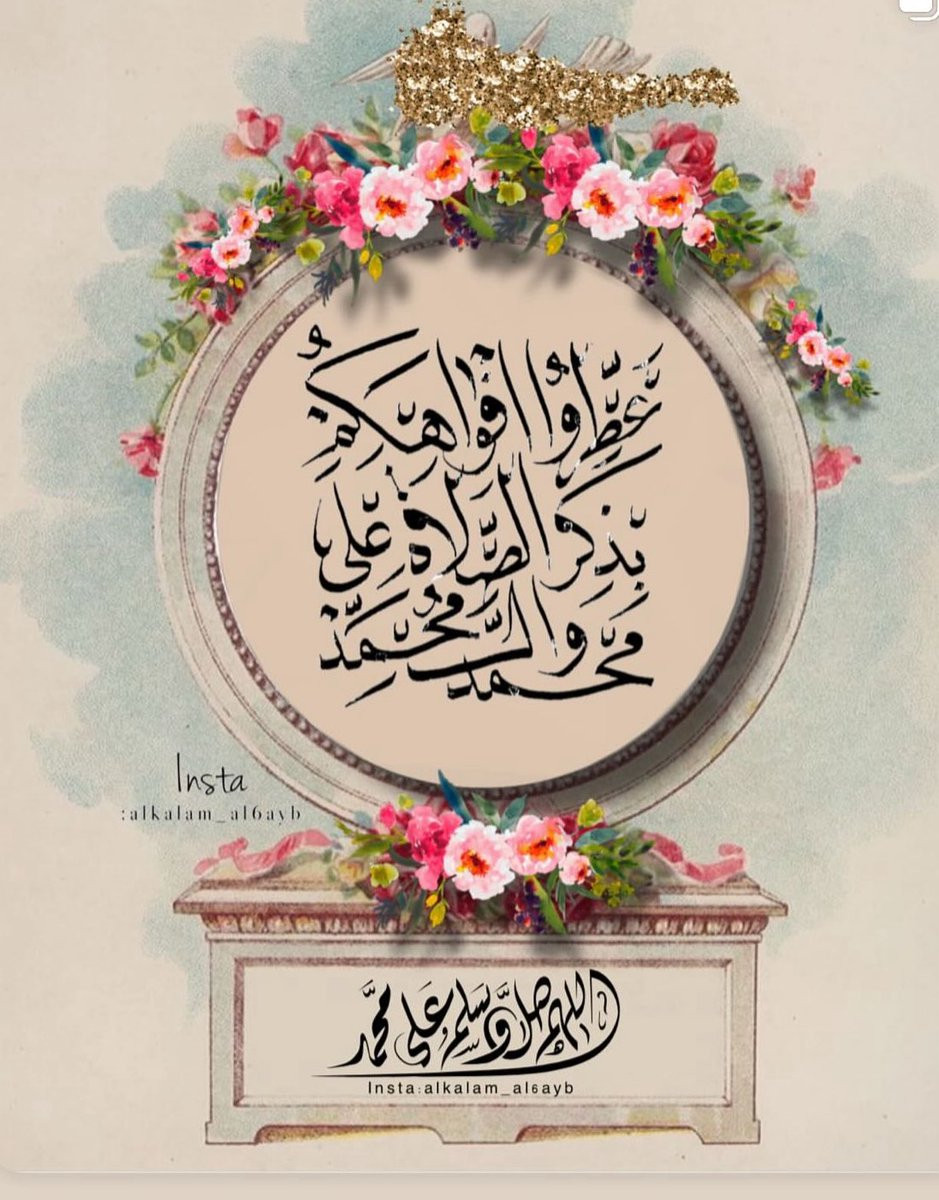 عَطِّرُوا افْوَاهَكُمْ
بِذِكْرِ الصَّلاةِ عَلى
محمد وال محمد
Insta
:alkalam_al6ayb
اللهم صل وسلم على محمد
Insta:alkalam_al6ayb